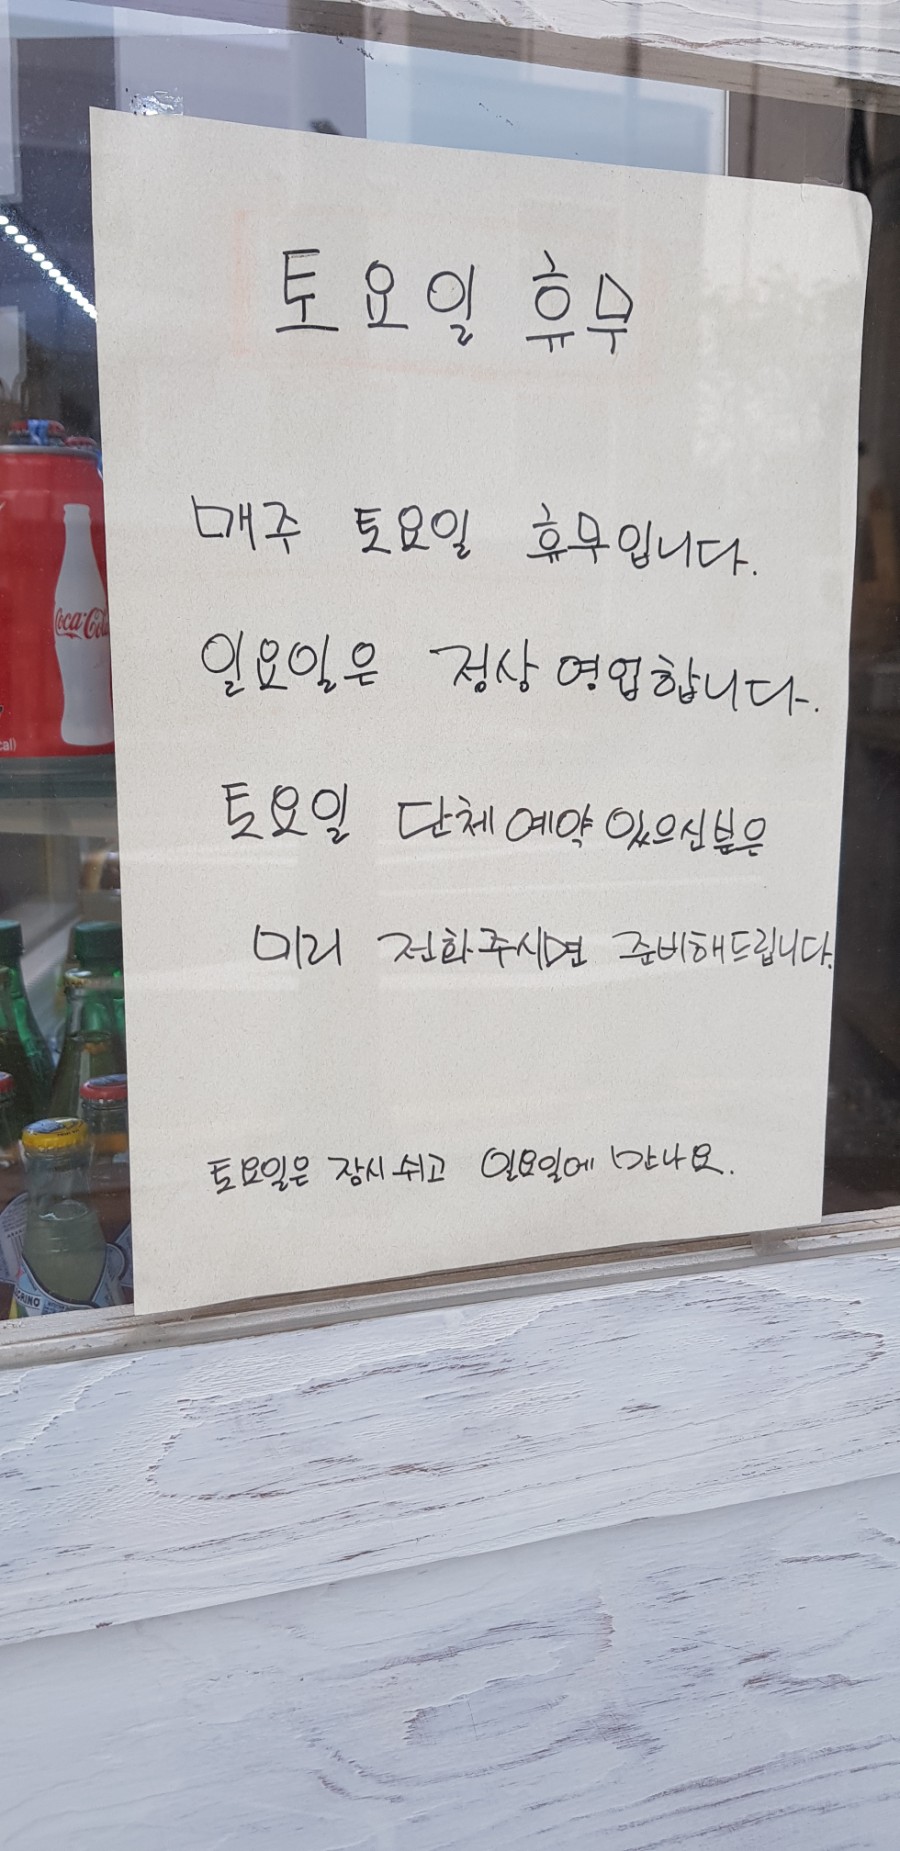 토요일 휴무
매주 토요일 휴무입니다.
일요일은 정상 영업합니다.
토요일 단체 예약 있으신분은
미리 전화주시면 준비해드립니다.
토요일은 잠시 쉬고 일요일에 만나요.
Coca-Col
cal)
GRINO